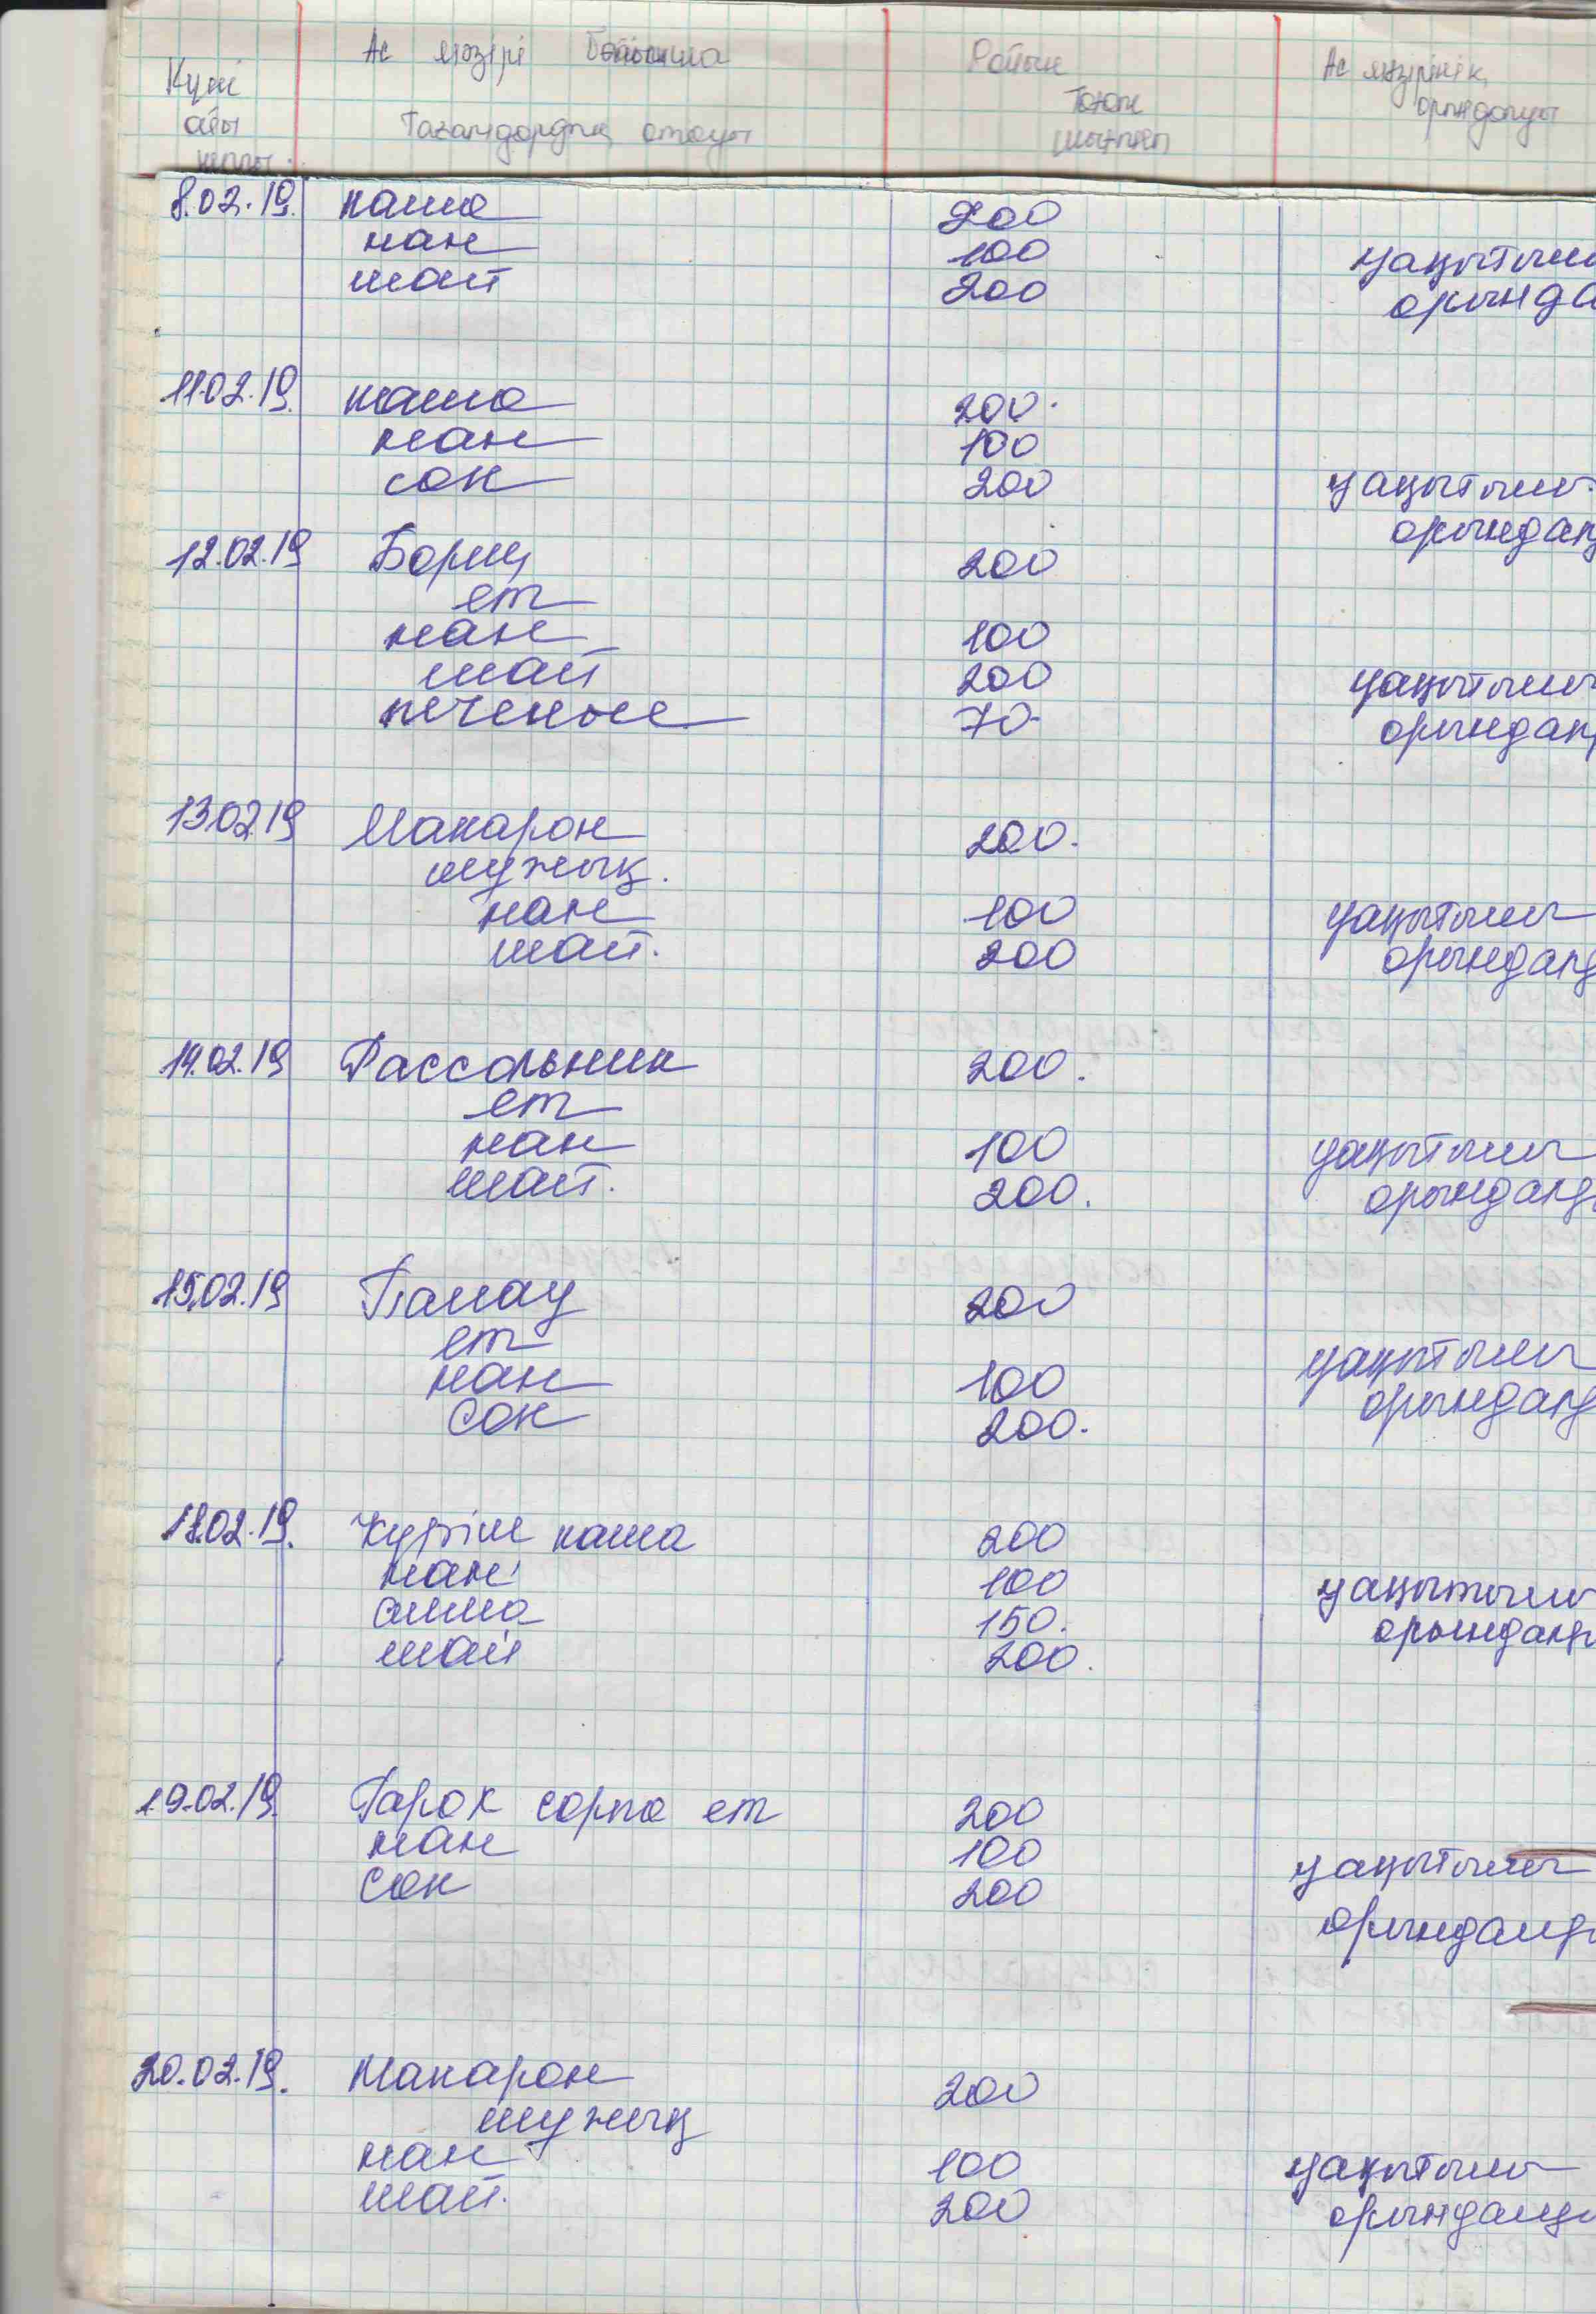 Күні
айы
жылы.
Ас мәзірі бойынша
Тағамдардың атауы
Дайын
Тағам
шығуы
Ас мәзірінің
орындалуы
8.02.19. каша 200
нан 100 уақытылы
шай 200 орында
11.02.19. каша 200.
нан 100
сок 200 уақытылы
орындал
12.02.19 Борщ 200
ет
нан 100
шай 200 уақытылы
печенье 70 орындал
13.02.19 Макарон 200.
шұжық.
нан 100 уақытылы
шай. 200 орындалд
14.02.19 Рассольник 200.
ет
нан 100 уақытылы
шай. 200. орындалд
15.02.19 Палау 200
ет уақытылы
нан 100 орындалд
сок 200.
18.02.19. Күріш каша 200
нан 100 уақытылы
алма 150. орындалд
шай 200.
19.02.19. Горох сорпа ет 200
нан 100 уақытылы
сок 200
орындалд
20.02.19. Макарон 200
шұжық
нан 100 уақытылы
шай. 200 орындалд